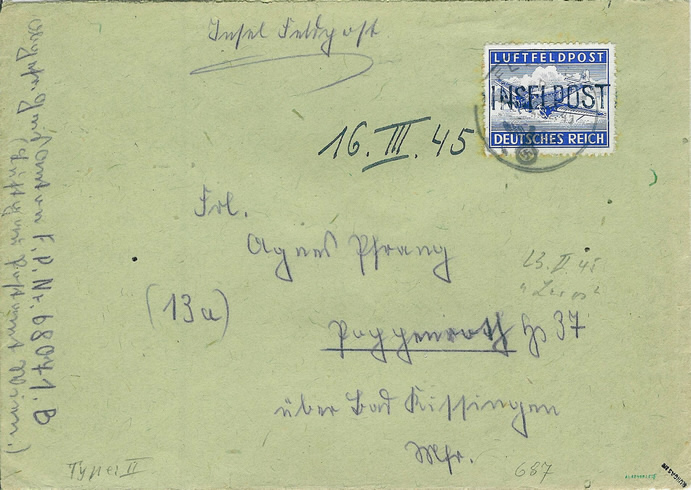 Insel Feldpost
LUFTFELDPOST
INSELPOST
DEUTSCHES REICH
16. III. 45
Frl.
Agnes Pfrang
(13a)
Poppenroth Hs 37
über Bad Kissingen
Mfr.
23. II. 45
F. P. Nr. 68041. B
Type II
687